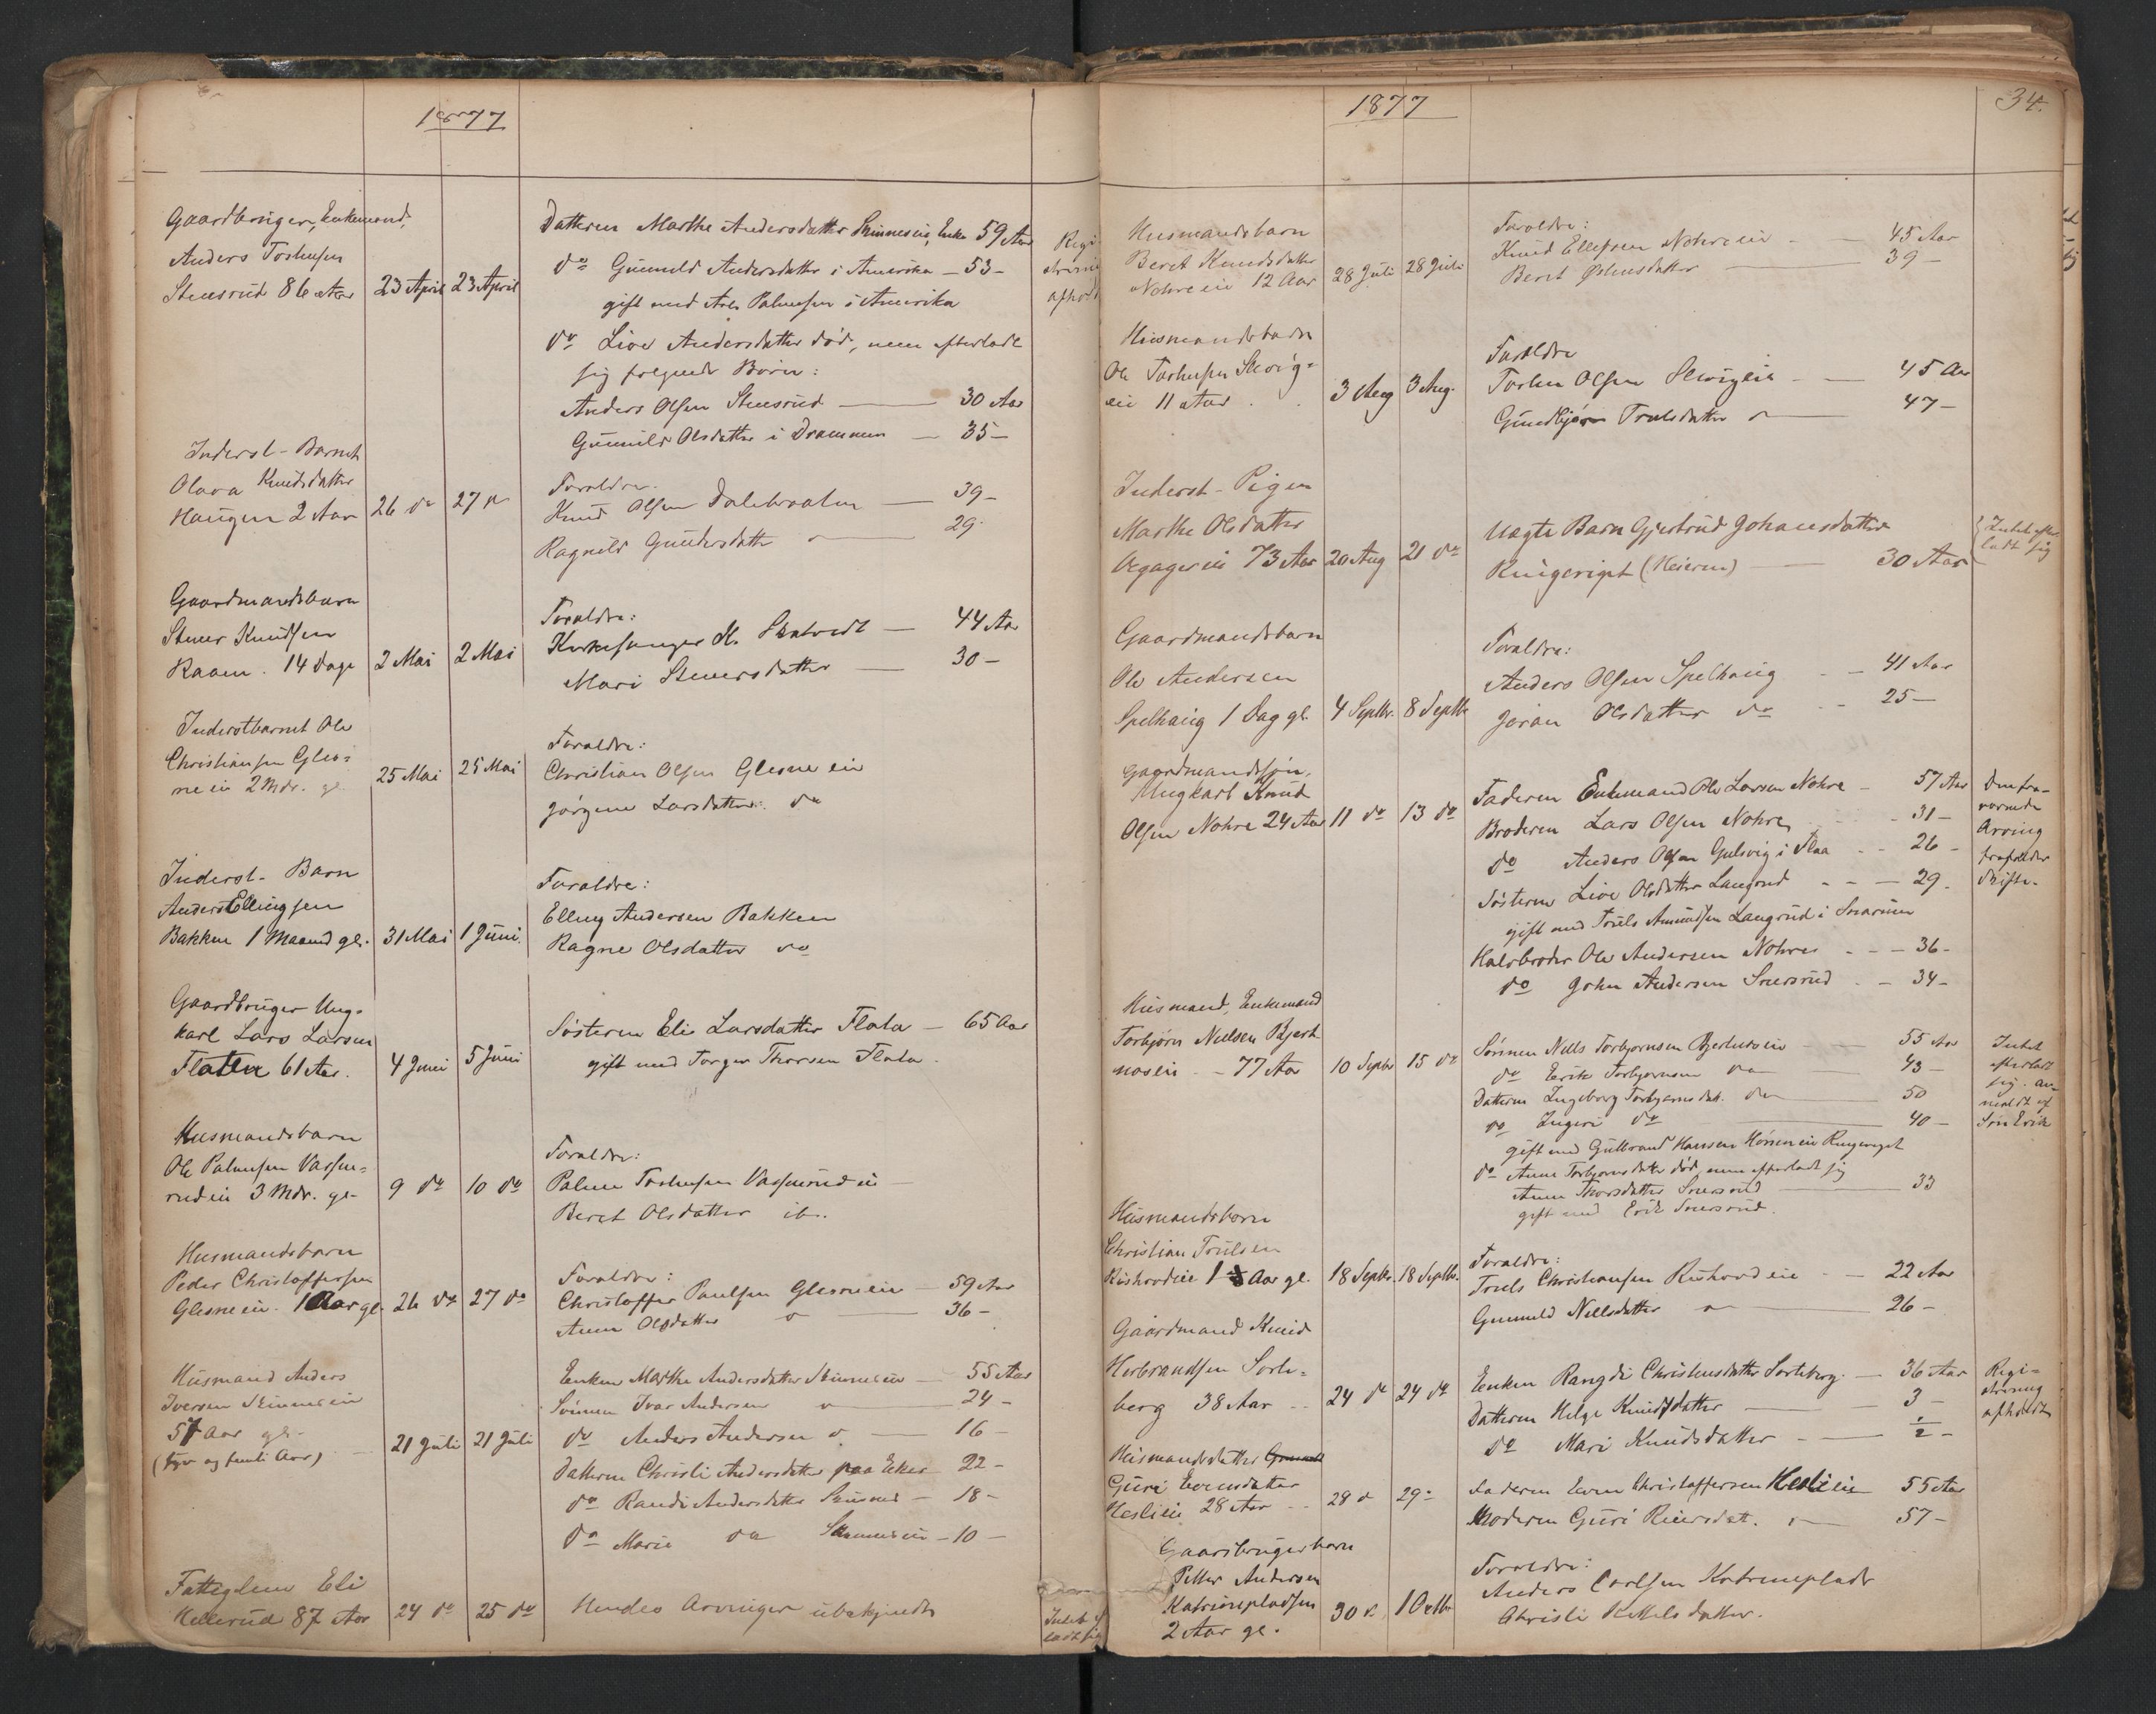 1877
Gaardbruger, Enkemand,
Anders Torkelsen
Stensrud 86 Aar 23 April 23 April
Datteren Marthe Andersdatter Skinnesei, Enke 59 Aar
do Gunnild Andersdatter i Amerika - 53 -
gift med Palmesen i Amerika
do Live Andersdatter død, men efterladt
sig følgende Børn:
Anders Olsen Stensrud 30 Aar
Gunnild Olsdatter i Drammen - 35 -
Inderst-Barnet
Olava Knudsdatter
Haugen 2 Aar 26 do 27 do
Forældre.
Knud Olsen 39 -
Ragnild Gundersdatter 29.
Gaardmandsbarn
Stener Knudsen
Raaen. 14 Dage 2 Mai 2 Mai
Forældre:
Kirkesanger K. Skatvedt - 44 Aar
Mari Stenersdatter 30 -
Inderstbarnet Ole
Christiansen Gles=
ne ei 2 Mdr. gl. 25 Mai 25 Mai
Forældre:
Christian Olsen Glesne ei
Jørgine Larsdatter do
Inderst-Barn
Anders Ellingsen
Bakken 1 Maaned gl. 31 Mai 1 Juni.
Forældre:
Elling Andersen Bakken
Ragne Olsdatter do
Gaardbruger Ung=
karl Lars Larsen
Flatten 61 Aar. 4 Juni 5 Juni
Søsteren Eli Larsdatter Flata - 65 Aar
gift med Torger Thorsen Flata.
Husmandsbarn
Ole Palmesen Vassen=
rudei 3 Mdr. gl. 9 do 10 do
Forældre:
Palme Torkelsen Vassenrud ei
Beret Olsdatter ib.
Husmandsbarn
Peder Christoffersen
Glesneei. 1 Aar gl. 26 do 27 do
Forældre:
Christoffer Paulsen Glesneei - 59 Aar
Anne Olsdatter 36 -
Husmand Anders
Iversen Skinnesei
57 Aar gl.
(Syv og femti Aar) 21 Juli 21 Juli
Enken Marthe Andersdatter Skinnesei - 55 Aar
Sønnen Ivar Andersen 24 -
do Anders Andersen 16 -
Datteren Christi Andersdatter paa Eker 22 -
do Randi Andersdatter 18 -
do Marie do Skinnesei - 10 -
Fattiglem Eli
Hellerud 87 Aar 24 do 25 do
Hendes Arvinger ubekjendte
1877
34.
Husmandsbarn
Beret Knudsdatter
Nohre ei 12 Aar 28 Juli 28 Juli
Forældre:
Knud Ellefsen Nohre ei 45 Aar
Beret 39 -
Husmandsbarn
Ole Torkelsen
ei 11 Aar 3 Aug 3 Aug.
Forældre
Torkel Olsen 45 Aar
Gundbjør Trulsdatter 47 -
Inderst-Pigen
Marthe Olsdatter
73 Aar 20 Aug 21 do
Uægte Barn Gjertrud Johansdatter
Ringeriget 30 Aar
Intet efter
ladt sig
Gaardmandsbarn
Ole Andersen
Spelhaug 1 Dag gl. 4 Septbr. 8 Septbr
Forældre:
Anders Olsen Spelhaug 41 Aar
Jøran Olsdatter do 25 -
Gaardmandssøn,
Ungkarl Knud
Olsen Nohre 24 Aar 11 do 13 do
Faderen Enkemand Ole Larsen Nohre - 57 Aar
Broderen Lars Olsen Nohre 31 -
do Anders Olsen Gulsvig i Flaa 26 -
Søsteren Live Olsdatter Langrud 29.
gift med Truls Amundsen Langrud i Snarum
Halvbroder Ole Andersen Nohre 36 -
do John Andersen 34 -
Den fra-
værende
Arving
frafalder
Skifte.
Husmand, Enkemand
Torbjørn Nielsen Bjert-
nesei 77 Aar 10 Septbr 15 do
Sønnen Nills Torbjørnsen Bjertnesei 55 Aar
do Erik Torbjørnsen do 43 -
Datteren Ingeborg Torbjørnsdat. do 50
do Ingeri do 40 -
gift med Gulbrand Hansen Ringeriget
do Anne Torbjørnsdatter død, men efterladt sig
Anne Thorsdatter 33
gift med Erik
Intet
efterladt
sig. An-
meldt af
Søn Erik
Husmandsbarn
Christian Trulsen
1 Aar gl. 18 Septbr. 18 Septbr.
Forældre:
Truls Christiansen 22 Aar
Gunnild Nillsdatter 26 -
Gaardmand Knud
Herbrandsen Sorte-
berg 38 Aar 24 do 24 do
Enken Rangdi Christensdatter Sorteberg 36 Aar
Datteren Helge Knudsdatter 3 -
do Mari Knudsdatter ½ -
Regi-
strering
afholdt
Husmandsdatter
Guri Evensdatter
Heslieei 28 Aar 28 do 29 do
Faderen Even Christoffersen Heslieei 55 Aar
Moderen Guri Reiersdat. 57 -
Gaardbrugerbarn
Petter Andersen
Katrinepladsen
2 Aar gl. 30 do 1 Octbr
Forældre:
Anders Carlsen Katrineplads
Christi Kittelsdatter.